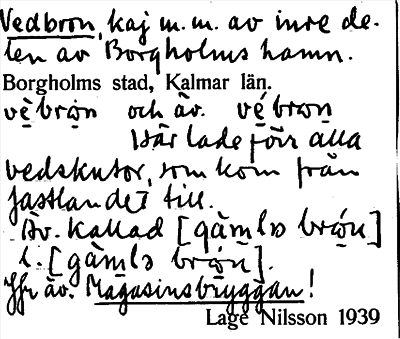 Vedbron, kaj m.m. av inre de-
len av Borgholms hamn.
Borgholms stad, Kalmar län.
vèbrọn och äv. vébrọn
Här lade förr alla
vedskutor, som kom från
fastlandet till.
Äv. kallad [gàmlɒ brọ́n]
l. [gàmlə brọ́n].
Jfr äv. Magasinsbryggan!
Lage Nilsson 1939